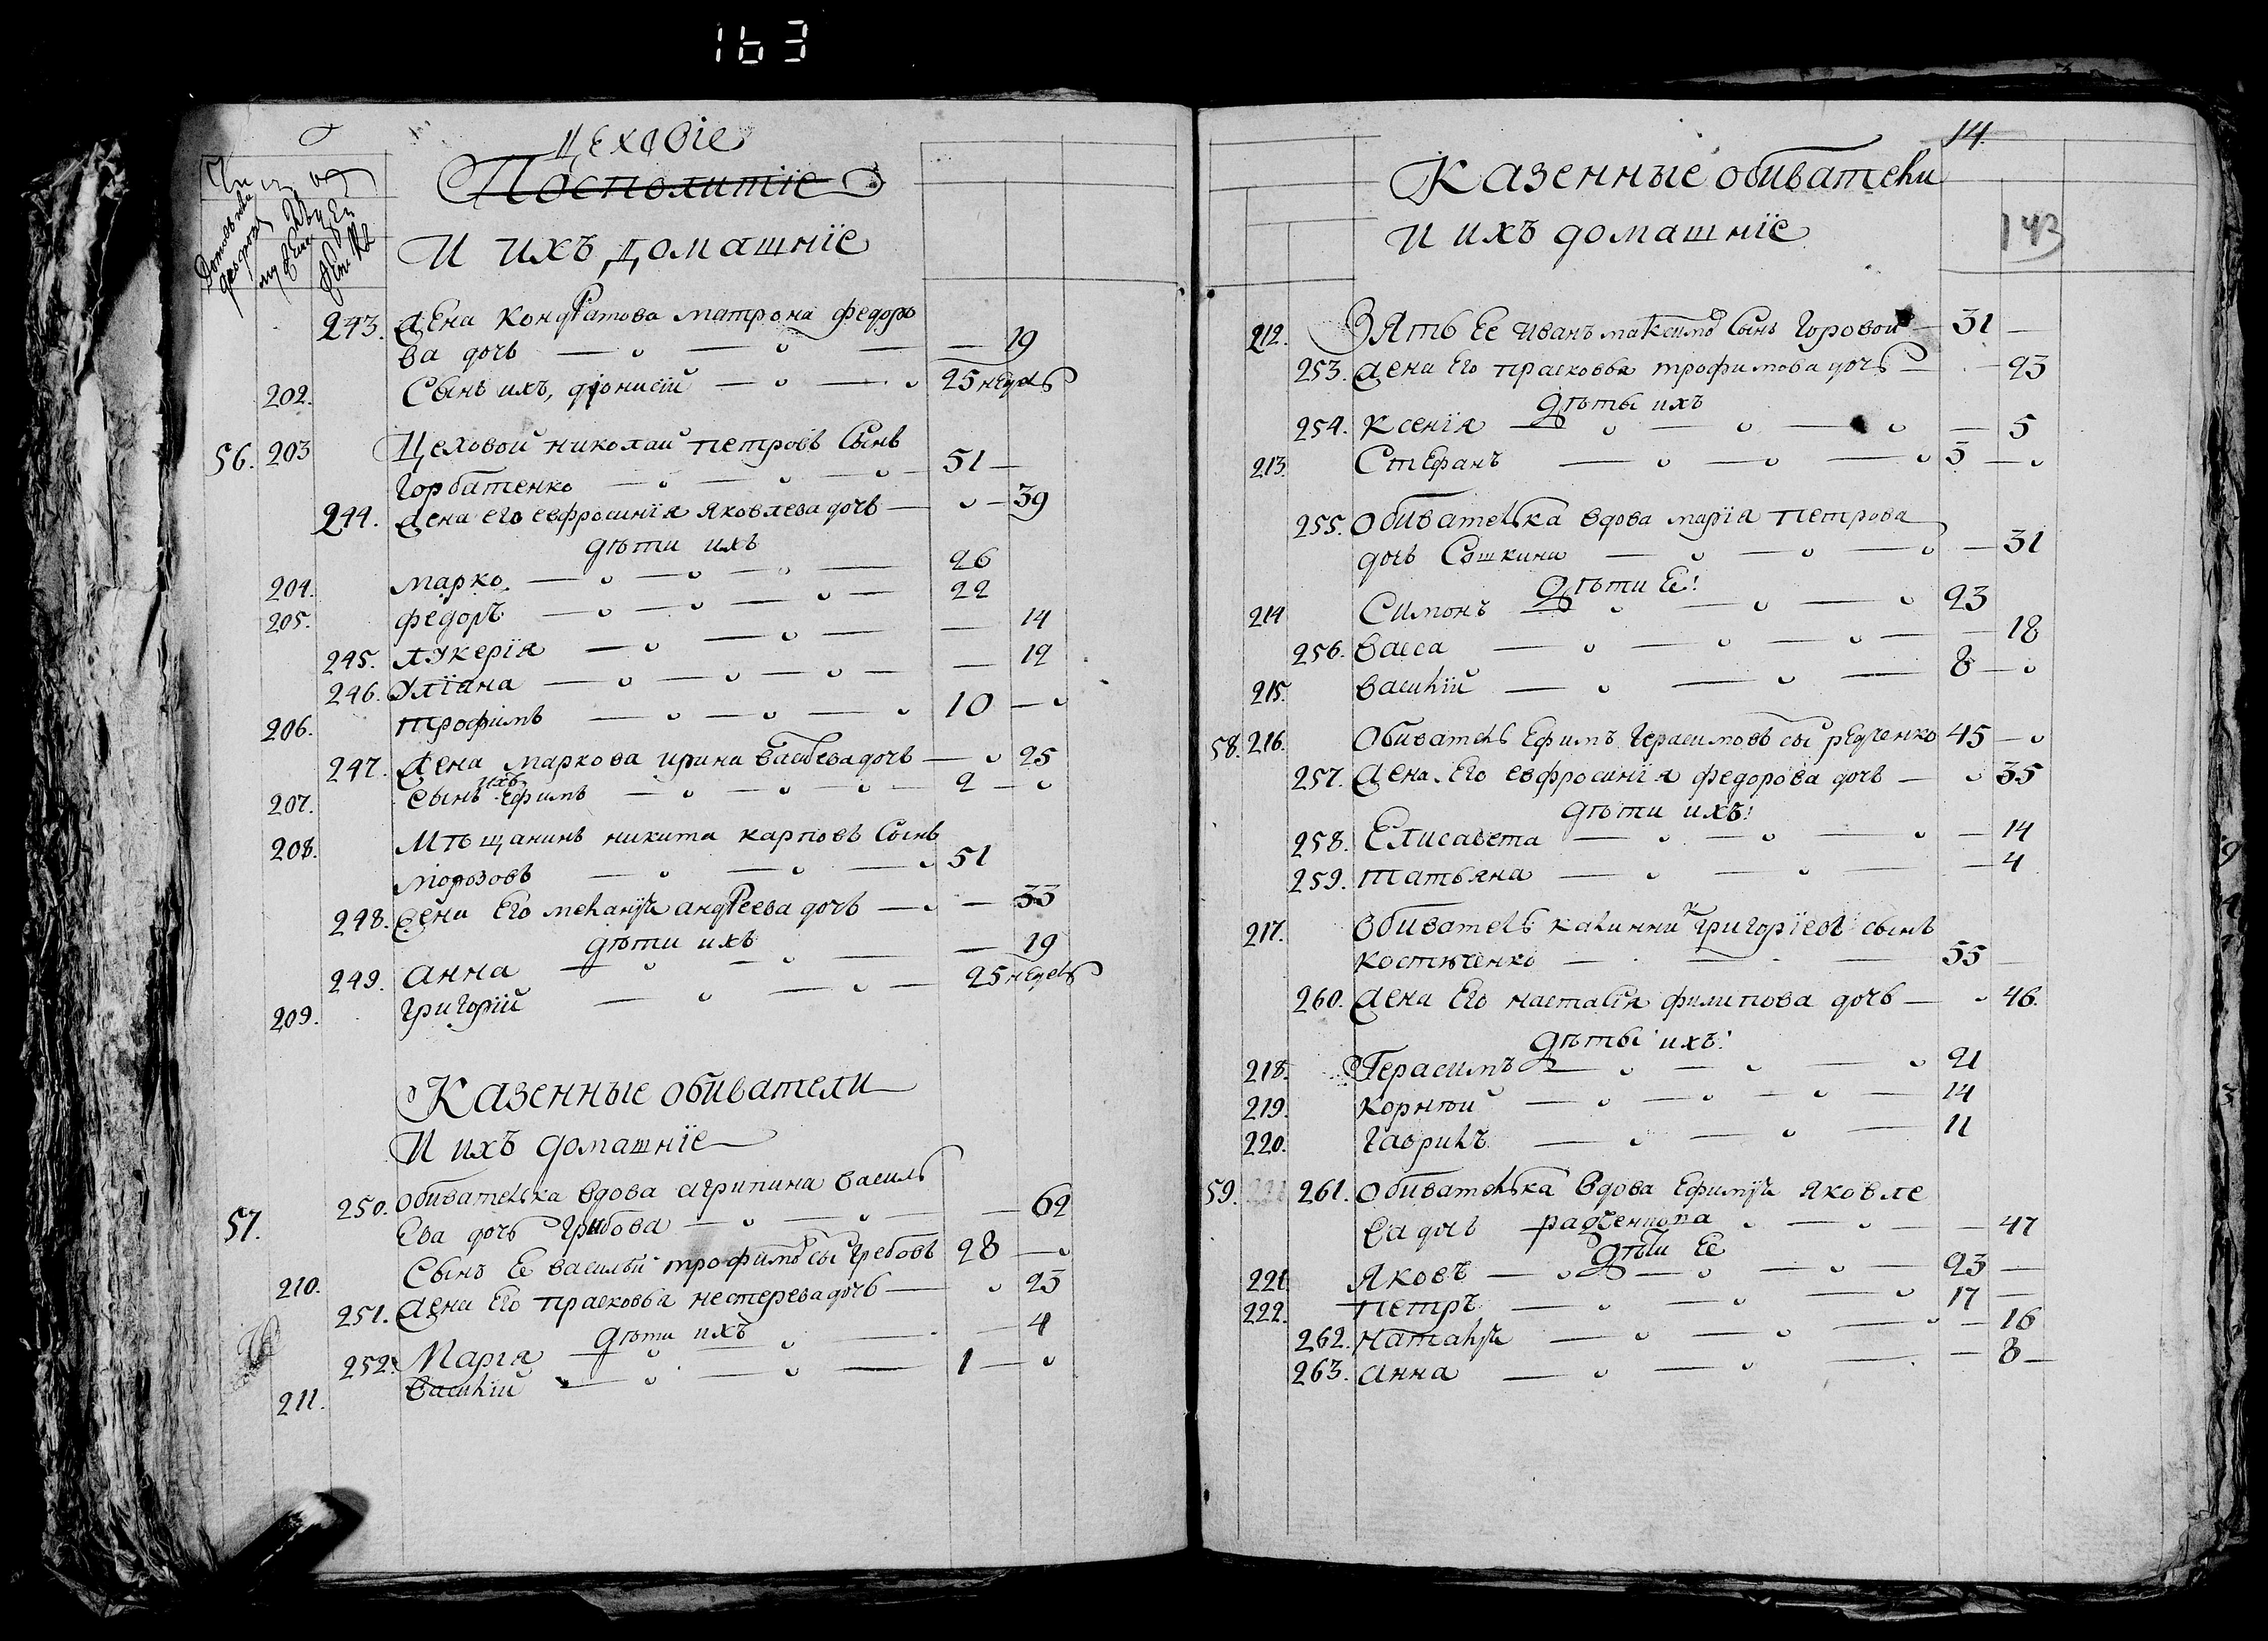 163
Цеховіе
Посполитіе
И ихъ домашнїе
243. Жена Кондратова матрона федоро
ва дочь — 19
202. Сынъ ихъ, діонисій 25 недель
56. 203 Цеховой николай петровъ Сынъ
Горбатенко 51 —
244. Жена его евфросинїя яковлева дочь — 39
дѣти ихъ
204. марко 26
205. федоръ 22
245. лукерїя — 14
246. Улїана — 12
206. трофимъ 10 —
247. Жена маркова ирина василева дочь — 25
207. Сынъ ихъ Ефимъ 2 —
208. Мѣщанинъ никита карповъ Сынъ
морозовъ 51
248. Жена Его меланія андреева дочь — 33
дѣти ихъ
249. Анна — 19
209. григорїй 25 недель
Казенные обиватели
И ихъ домашнїе
57. 250. Обивателька вдова агрипина василь
Ева дочь Грибова — 62
210. Сынъ Ее василей трофимовъ сы Гребовъ 28 —
251. Жена Его прасковья нестерева дочь — 23
дѣти ихъ
252. Марія — 4
211. василїй 1 —
14.
Казенные обиватели
143
и ихъ домашнїе
212. Зять Ее иванъ максимо Сынъ Горовой 31 —
253. Жена Его прасковья трофимова дочь — 23
дѣты ихъ
254. Ксенїя — 5
213. Стефанъ 3 —
255. Обивателька вдова марїя петрова
дочь Сошкина — 31
дѣти Ее:
214 Симонъ 23
256. васса — 18
215. василїй 8 —
58. 216. Обиватель Ефимъ Герасимовъ сы редченко 45 —
257. Жена Его евфросинїя федорова дочь — 35
дѣти ихъ:
258. Елисавета — 14
259. татьяна — 4
217. Обиватель калинникъ григорїевъ сынъ
костюченко 55 —
260. Жена Его настасїя филипова дочь — 46.
дѣты ихъ:
218. Герасимъ 21
219. корнѣй 14
220. гаврилъ 11
59. 221 261. Обивателька вдова Ефимія яковле
ва дочь радченкова — 47
дѣти Ее
221. яковъ 23 —
222. петръ 17 —
262. наталія — 16
263. анна — 8 —